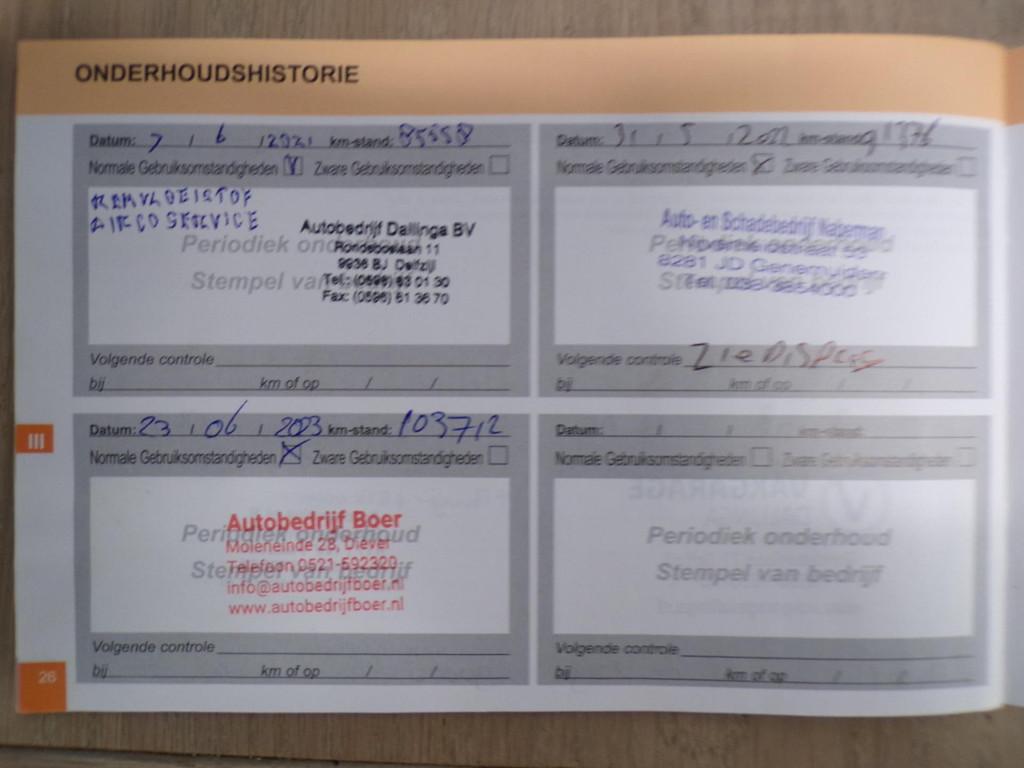 ONDERHOUDSHISTORIE
Datum: 7 / 6 / 2021 km-stand: 85558
Normale Gebruiksomstandigheden Zware Gebruiksomstandigheden
REMVLOEISTOF
AIRCO SERVICE
Periodiek onderhoud
Stempel van bedrijf
Autobedrijf Dallinga BV
Rondeboslaan 11
9936 BJ Delfzijl
Tel.: (0596) 63 01 30
Fax: (0596) 61 36 70
Volgende controle
bij km of op / /
Datum: 31 / 5 / 2022 km-stand: 91376
Normale Gebruiksomstandigheden Zware Gebruiksomstandigheden
Auto- en Schadebedrijf Naberman
8281 JD Genemuiden
Tel. 038-3854000
Volgende controle Zie Display
bij km of op / /
III
Datum: 23 / 06 / 2023 km-stand: 103712
Normale Gebruiksomstandigheden Zware Gebruiksomstandigheden
Periodiek onderhoud
Stempel van bedrijf
Autobedrijf Boer
Moleneinde 28, Diever
Telefoon 0521-592320
info@autobedrijfboer.nl
www.autobedrijfboer.nl
Volgende controle
bij km of op / /
Datum: / / km-stand:
Normale Gebruiksomstandigheden Zware Gebruiksomstandigheden
Periodiek onderhoud
Stempel van bedrijf
Volgende controle
bij km of op / /
26